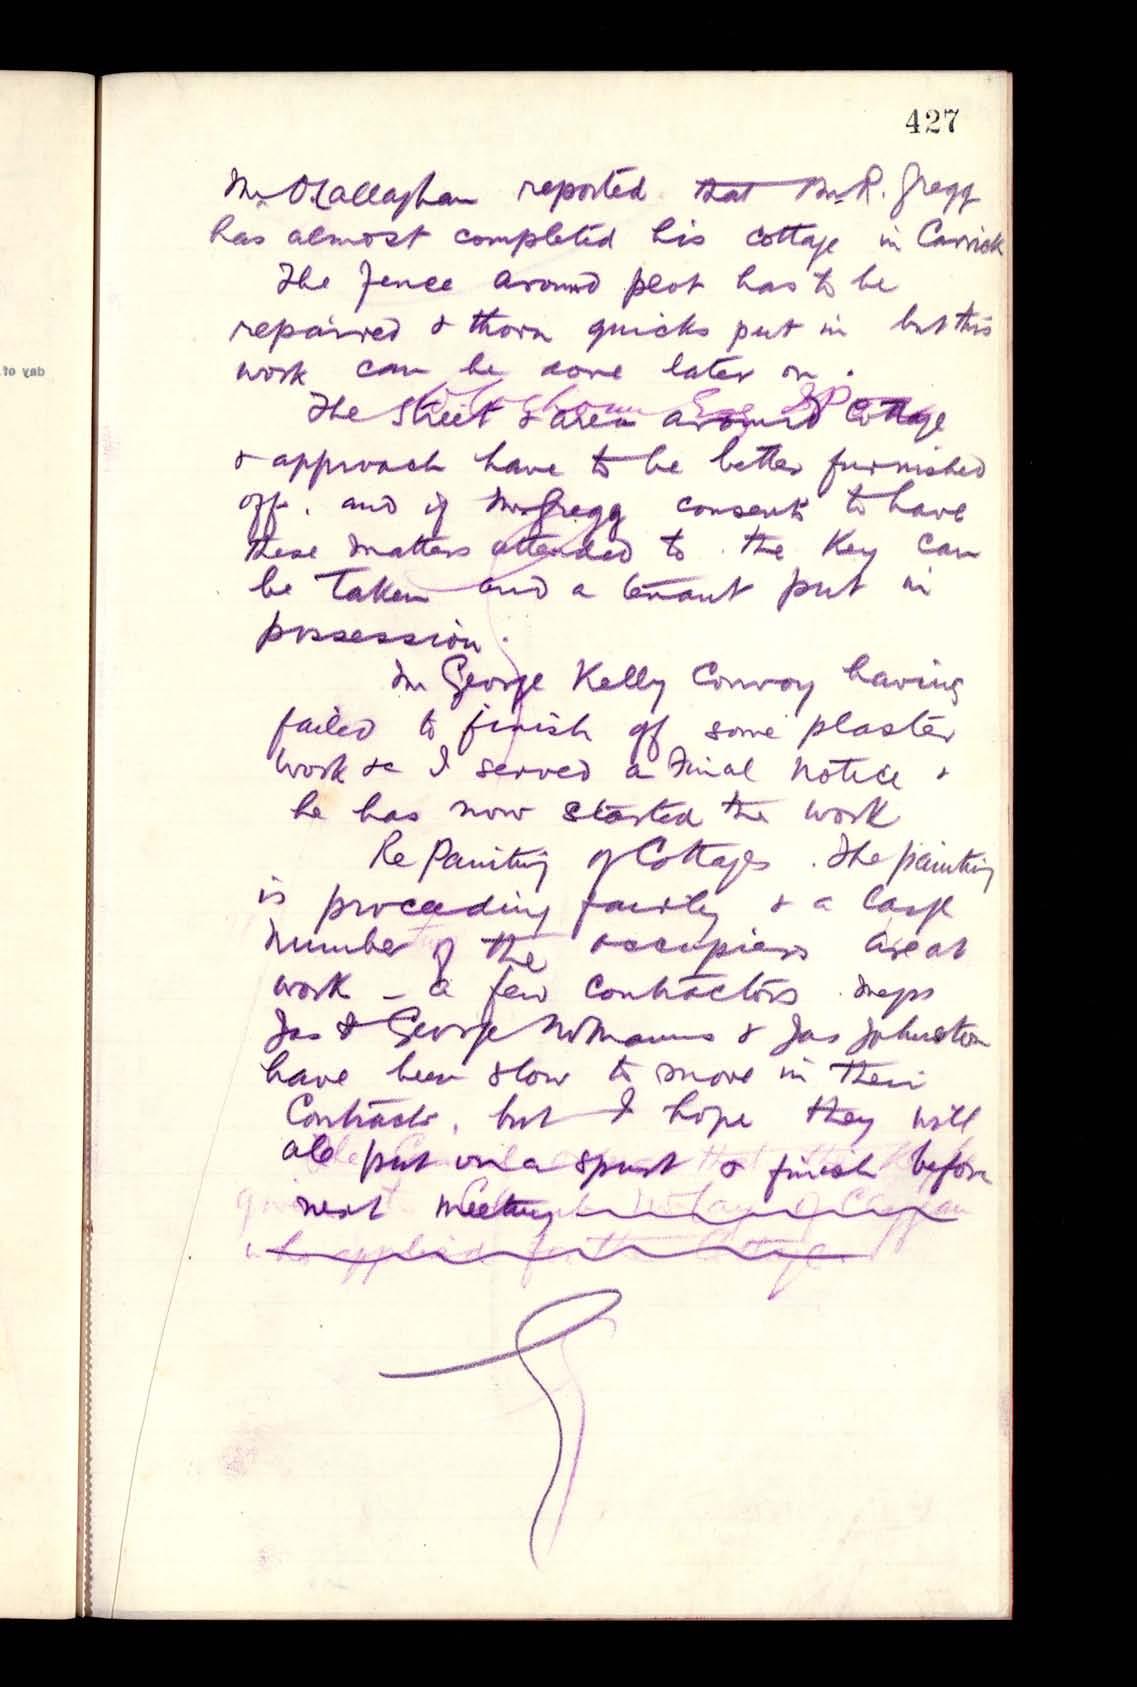 427
Mr O'Callaghan reported that Mr R. Gregg
has almost completed his cottage in Carrick
The fence around plot has to be
repaired & thorn quicks put in but this
work can be done later on.
The Street & area around Cottage
& approach have to be better furnished
off. and if Mr Gregg consents to have
these matters attended to the Key can
be taken and a tenant put in
possession.
Mr George Kelly Convoy having
failed to finish off some plaster
work &c I served a final notice &
he has now started the work
Re Painting of Cottages. The painting
is proceeding fairly & a large
number of the occupiers are at
work - a few contractors Messrs
Jas & George McManus & Jas Johnston
have been slow to move in their
Contracts, but I hope they will
all put on a spurt & finish before
next meeting
day of